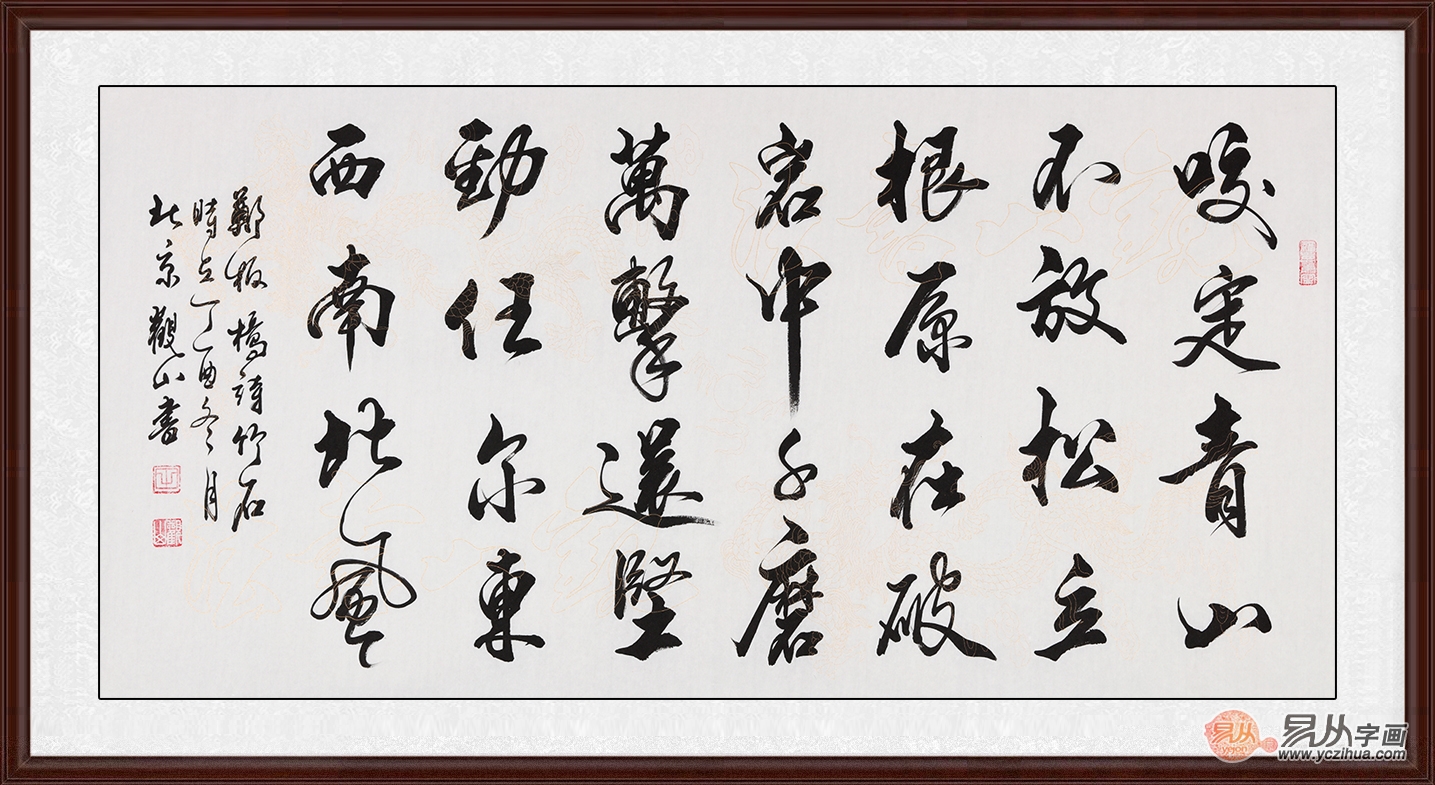 咬定青山
不放松立
根原在破
岩中千磨
萬擊還堅
勁任尔東
西南北風
鄭板橋詩竹石
時在丁酉冬月
北京觀山書
易从
易从字画
www.yczihua.com